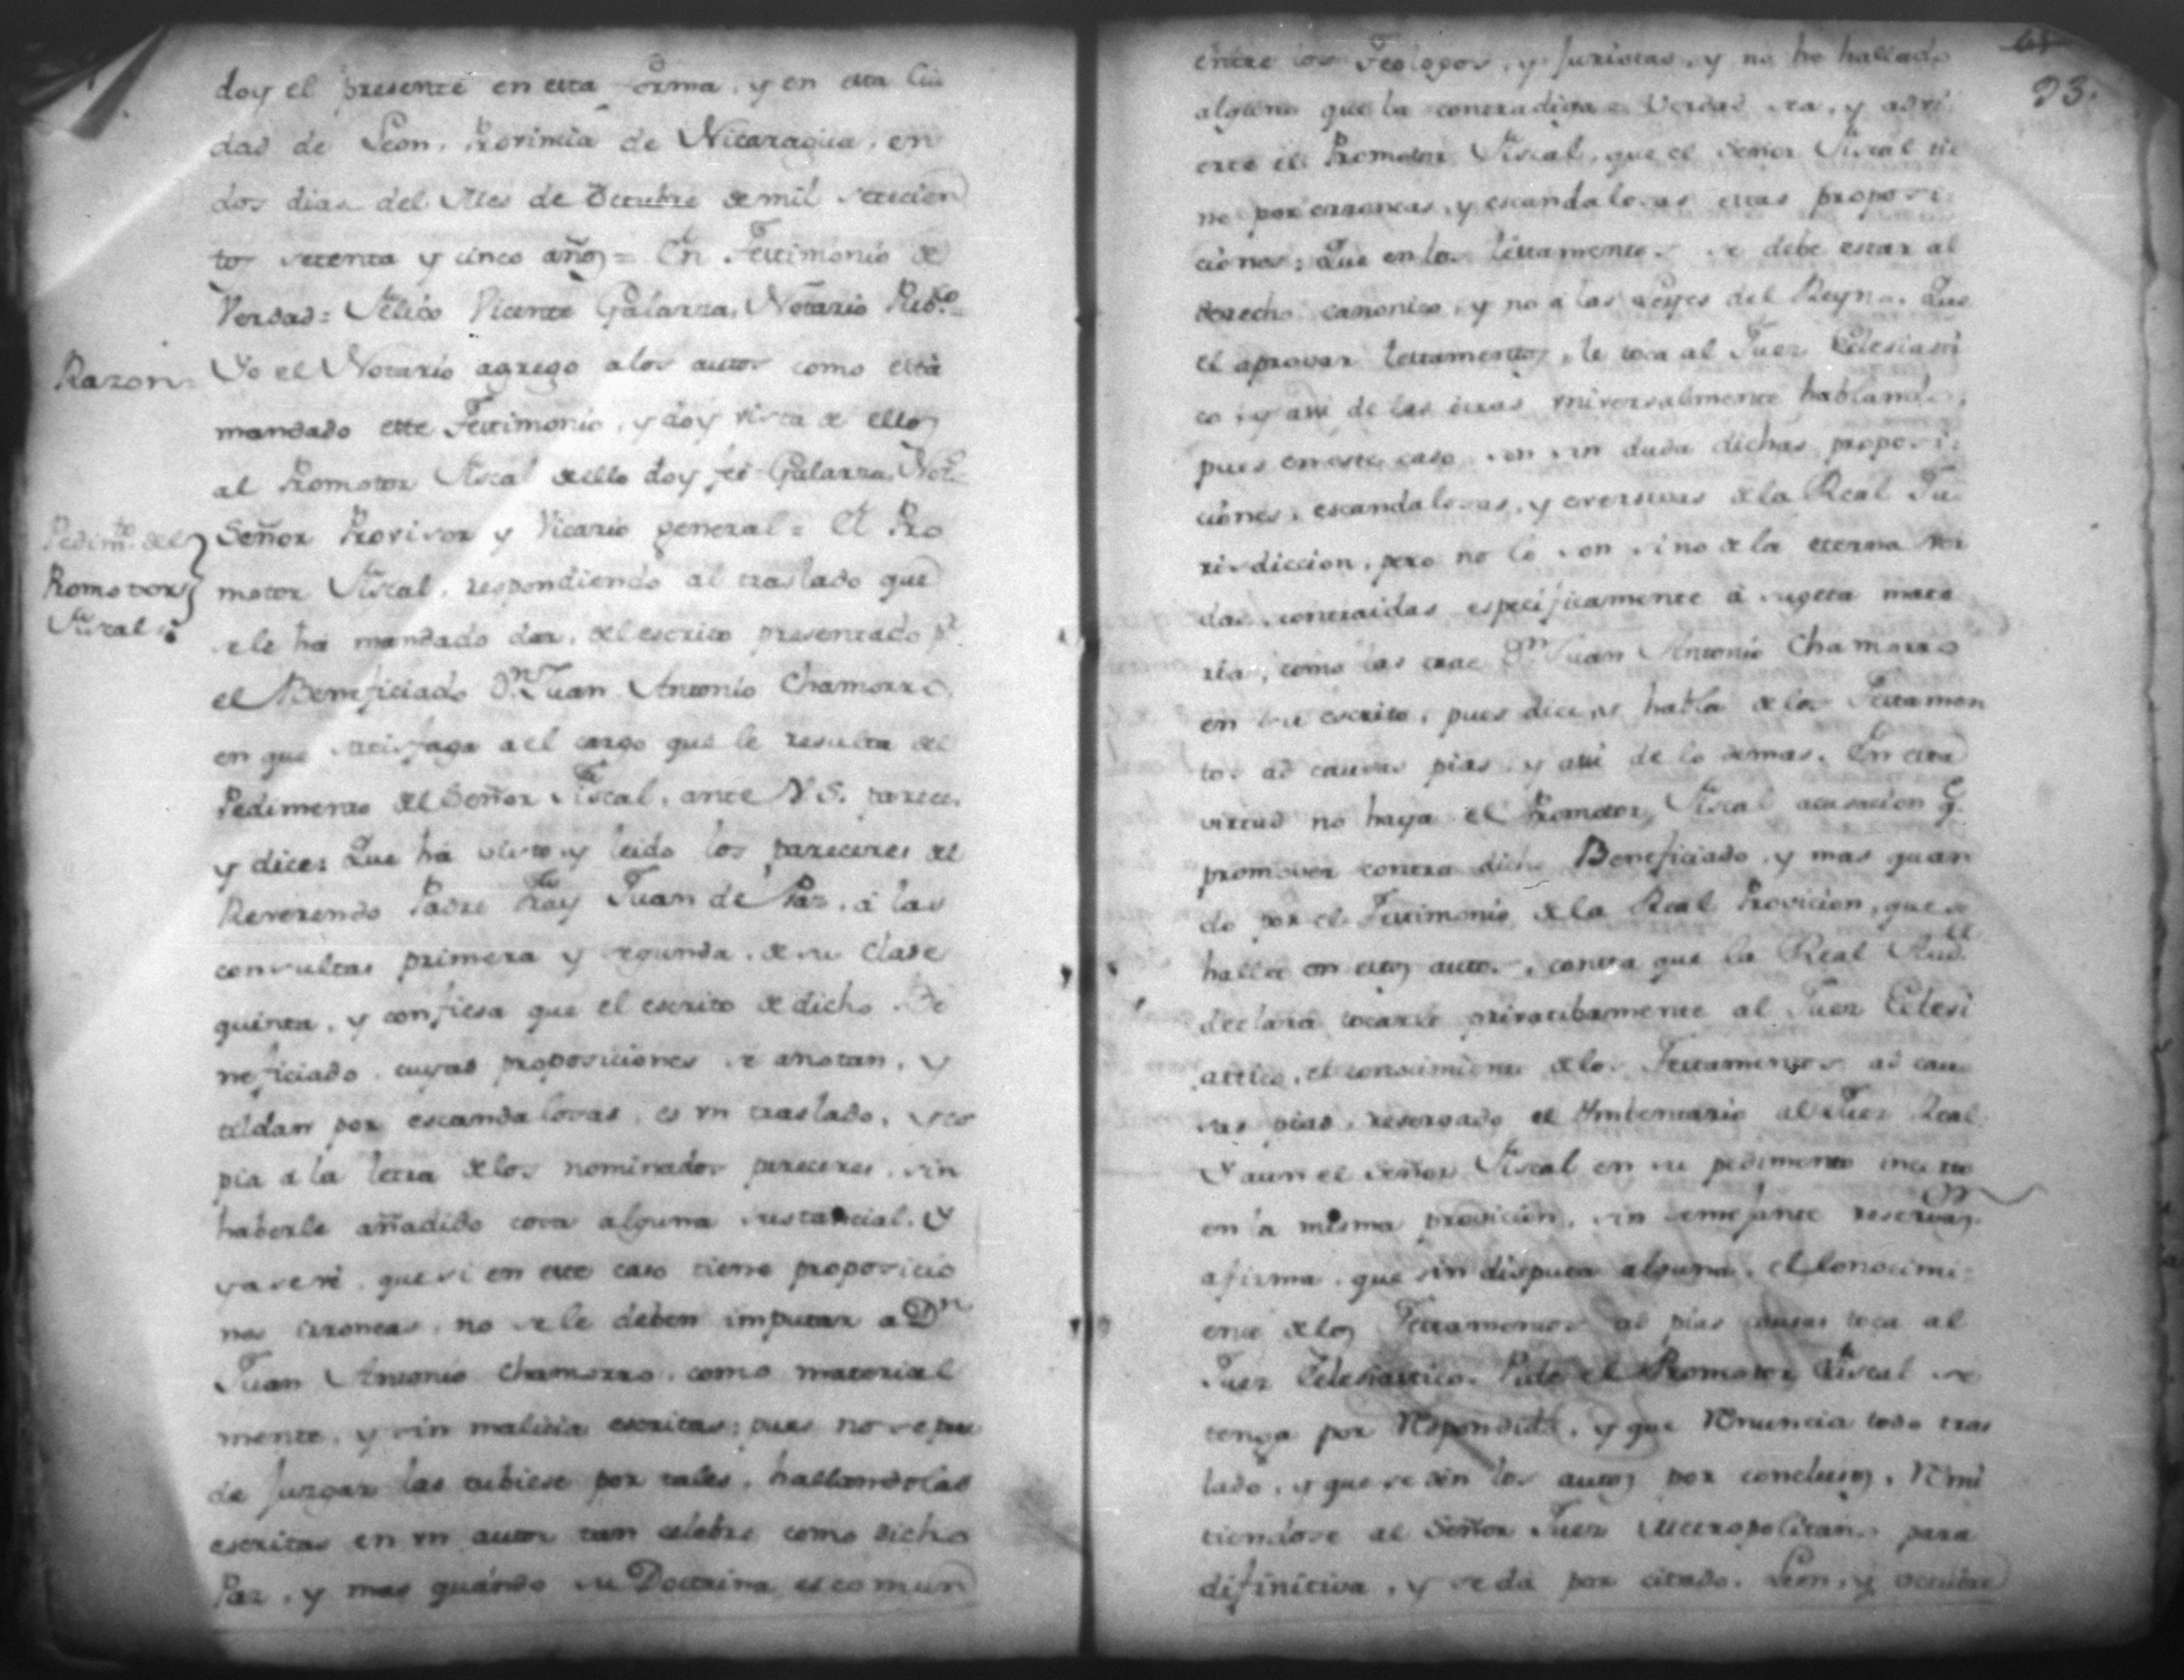 doy el presente en esta forma, y en esta Ciu
dad de Leon, Provincia de Nicaragua, en
dos dias del Mes de Octubre de mil setecien
tos setenta y cinco años = En Testimonio de
Verdad = Felis Vicente Galarza, Notario Pub.co =
Razon = Yo el Notario agrego a los autos como está
mandado este Testimonio, y doy vista de ellos
al Promotor Fiscal de ello doy fé = Galarza, Not.o
Pedim.to del
Promotor
Fiscal
Señor Provisor y Vicario general = El Pro
motor Fiscal, respondiendo al traslado que
se le há mandado dar, del escrito presentado p.r
el Beneficiado D.n Juan Antonio Chamorro,
en que satisfaga a el cargo que le resulta del
Pedimento del Señor Fiscal, ante V S. parece,
y dice: Que há visto, y leido los pareceres del
Reverendo Padre Fray Juan de Paz, á las
consultas primera y segunda, de su Clase
quinta, y confiesa que el escrito de dicho Be
neficiado, cuyas proposiciones se anotan, y
tildan por escandalosas, es vn traslado, y co
pia á la letra de los nominados pareceres, sin
haberle añadido cosa alguna sustancial. Y
que si en este caso tiene proposicio
nes erroneas, no se le deben imputar a D.n
Juan Antonio Chamorro, como material
mente, y sin malicia escritas; pues no se pue
de juzgar las tubiese por tales, hallandolas
escritas en vn autor tan celebre como dicho
Paz, y mas quando su Doctrina es comun
93.
entre los Teologos, y Juristas, y no he hallado
alguno que la contradiga. Verdad era, y advi
erte el Promotor Fiscal, que el Señor Fiscal tie
ne por erroneas, y escandalosas estas proposi
ciones: Que en los testamentos se debe estar al
derecho canonico, y no á las Leyes del Reyno. Que
el aprovar testamentos, le toca al Juez Eclesiasti
co, y asi de las otras vniversalmente hablando,
pues en este caso son sin duda dichas proposi
ciones, escandalosas, y eversivas de la Real Ju
risdiccion, pero no lo son sino de la eterna ver
dad, contraidas especificamente á sugeta mate
ria, como las trae D.n Juan Antonio Chamorro
en su escrito, pues dice, se habla de los Testamen
tos ad causas pias, y asi de lo demas. En esta
virtud no haya el Promotor Fiscal acusacion q.e
promover contra dicho Beneficiado, y mas quan
do por el Testimonio de la Real Provicion, que se
halla en estos autos, consta que la Real Aud.a
declara tocarle privatibamente al Juez Eclesi
astico, el conocimiento de los Testamentos ad cau
sas pias, reservado el Ymbentario al Juez Real.
Y aun el Señor Fiscal en su pedimento incerto
en la misma provicion, sin semejante reservaz.on
afirma, que sin disputa alguna, el Conocimi
ento de los Testamentos ad pias causas toca al
Juez Eclesiastico. Pide el Promotor Fiscal se
tenga por Respondido, y que Renuncia todo tras
lado, y que se den los autos por conclusos, Remi
tiendose al Señor Juez Metropolitano para
difinitiva, y se dá por citado. Leon, y octubre